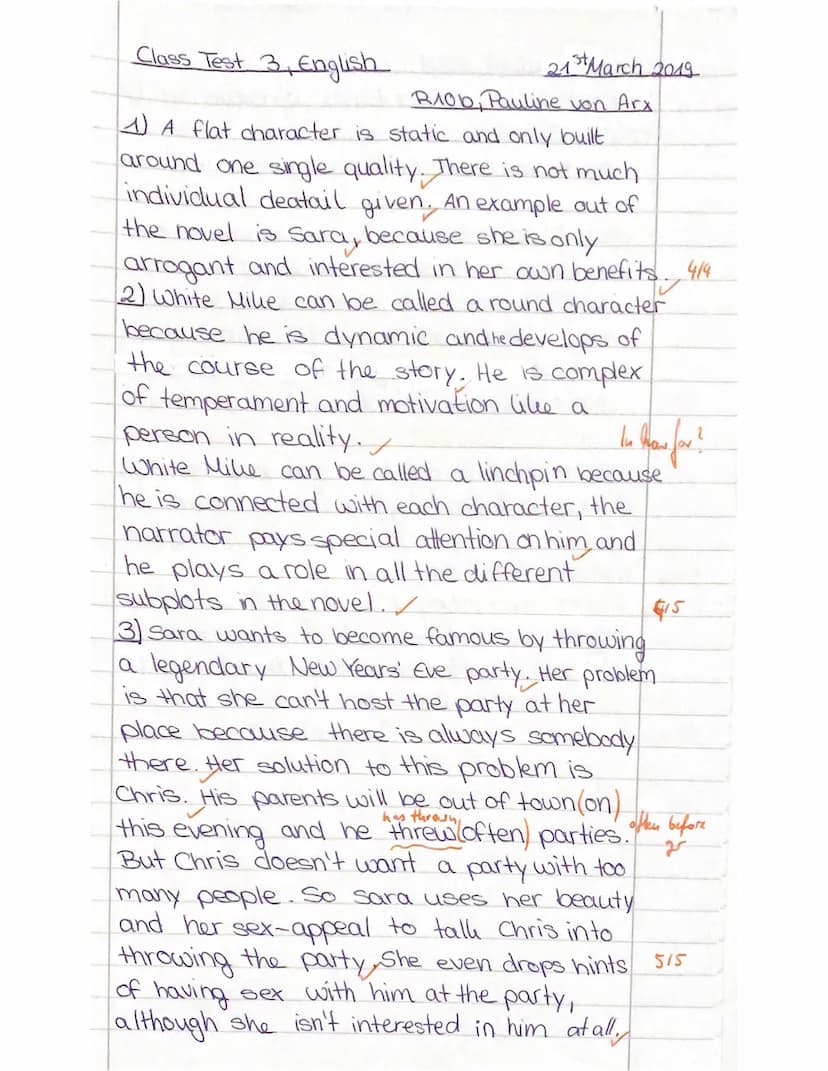 Class Test 3, English 21st March 2019
R10b, Pauline von Arx
1) A flat character is static and only built
around one single quality. There is not much
individual deatail given. An example out of
the novel is Sara, because she is only
arrogant and interested in her own benefits. 4/4
2) White Mike can be called a round character
because he is dynamic and he develops of
the course of the story. He is complex
of temperament and motivation like a
person in reality. In how far?
White Mike can be called a linchpin because
he is connected with each character, the
narrator pays special attention on him and
he plays a role in all the different
subplots in the novel. /5
3) Sara wants to become famous by throwing
a legendary New Years' Eve party. Her problem
is that she can't host the party at her
place because there is always somebody
there. Her solution to this problem is
Chris. His parents will be out of town (on)
has thrown often before
this evening and he threw (often) parties.
But Chris doesn't want a party with too
many people. So Sara uses her beauty
and her sex-appeal to talk Chris into
throwing the party. She even drops hints 5/5
of having sex with him at the party,
although she isn't interested in him at all.